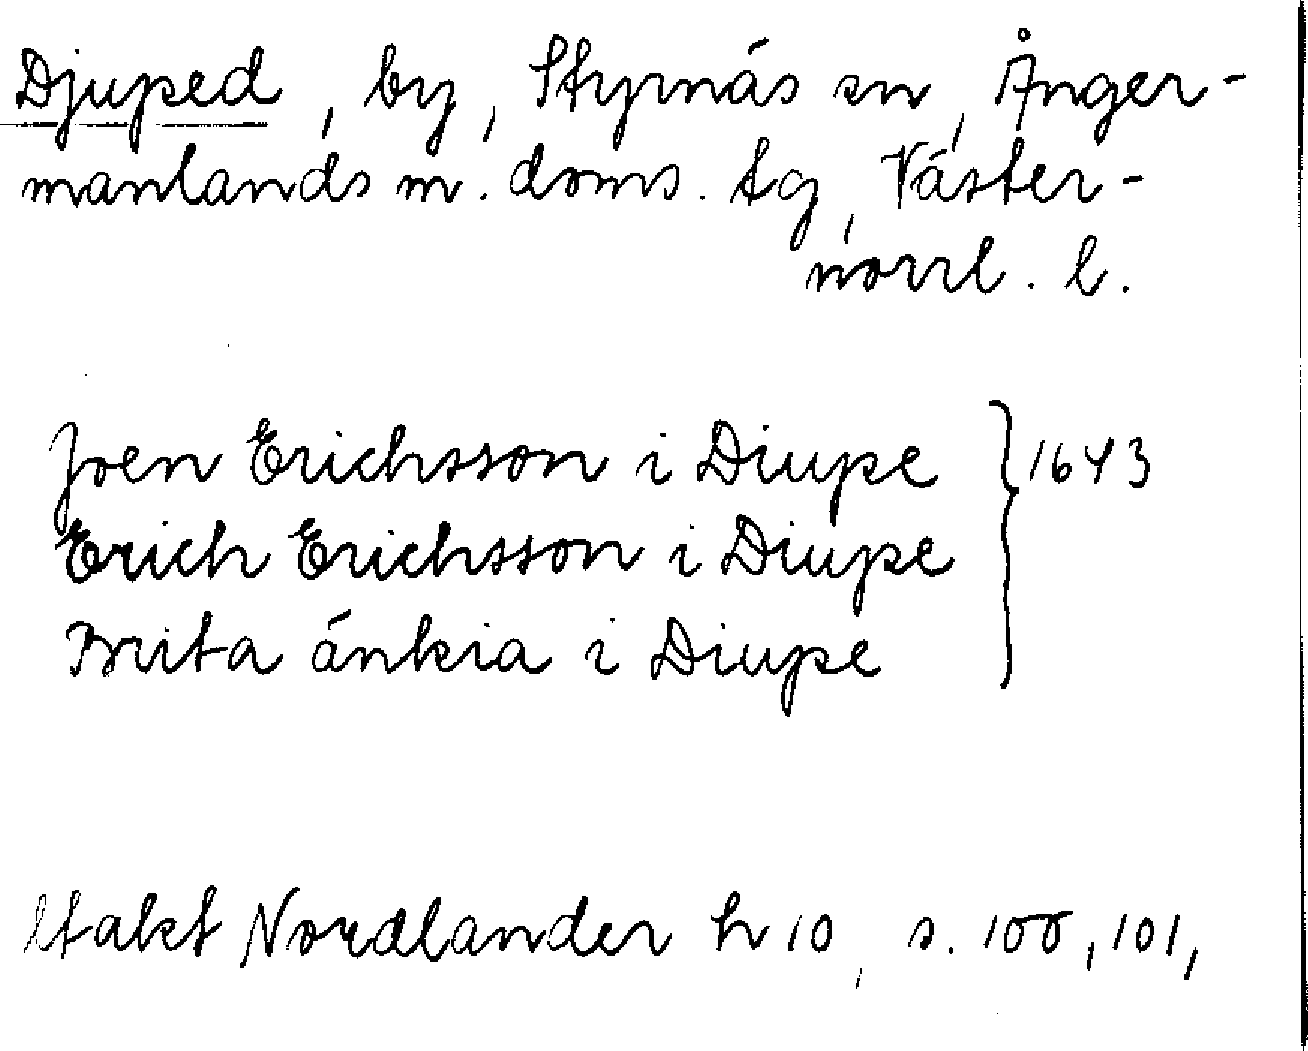 Djuped, by, Styrnäs sn, Ånger-
manlands m. doms. tg, Väster-
norrl. l.
Joen Erichsson i Diupe } 1643
Erich Erichsson i Diupe
Brita änkia i Diupe
Utakt Nordlander h 10, s. 100, 101,